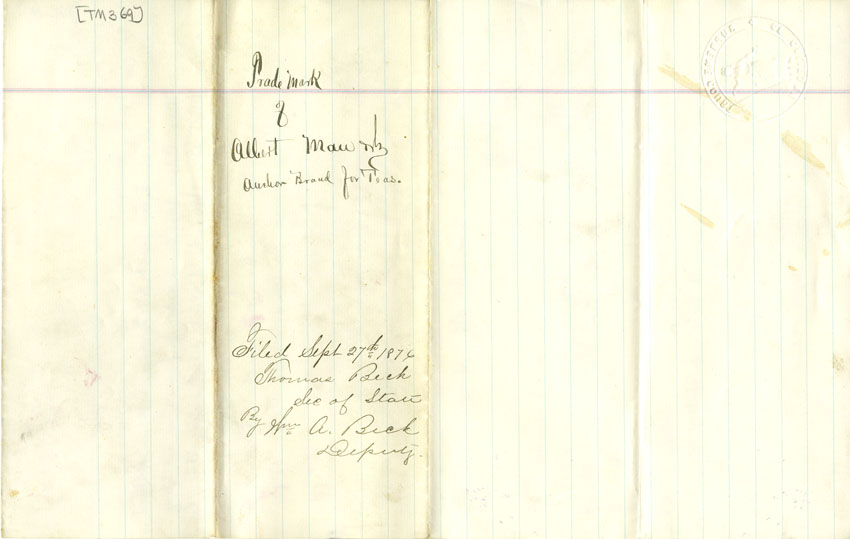 [TM369]
Trade Mark
of
Albert Mau
Anchor Brand for Teas.
Filed Sept 27th 1876
Thomas Beck
Sec of State
By Wm A. Beck
Deputy.